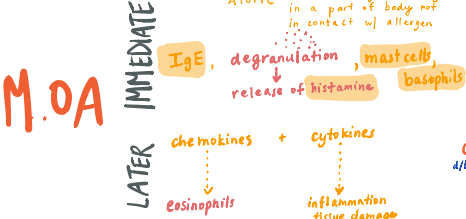 Atopic
in a part of body not
in contact w/ allergen
M.OA
IMMEDIATE
IgE, degranulation, mast cells,
basophils
release of histamine
LATER
chemokines + cytokines
eosinophils
inflammation
tissue damage